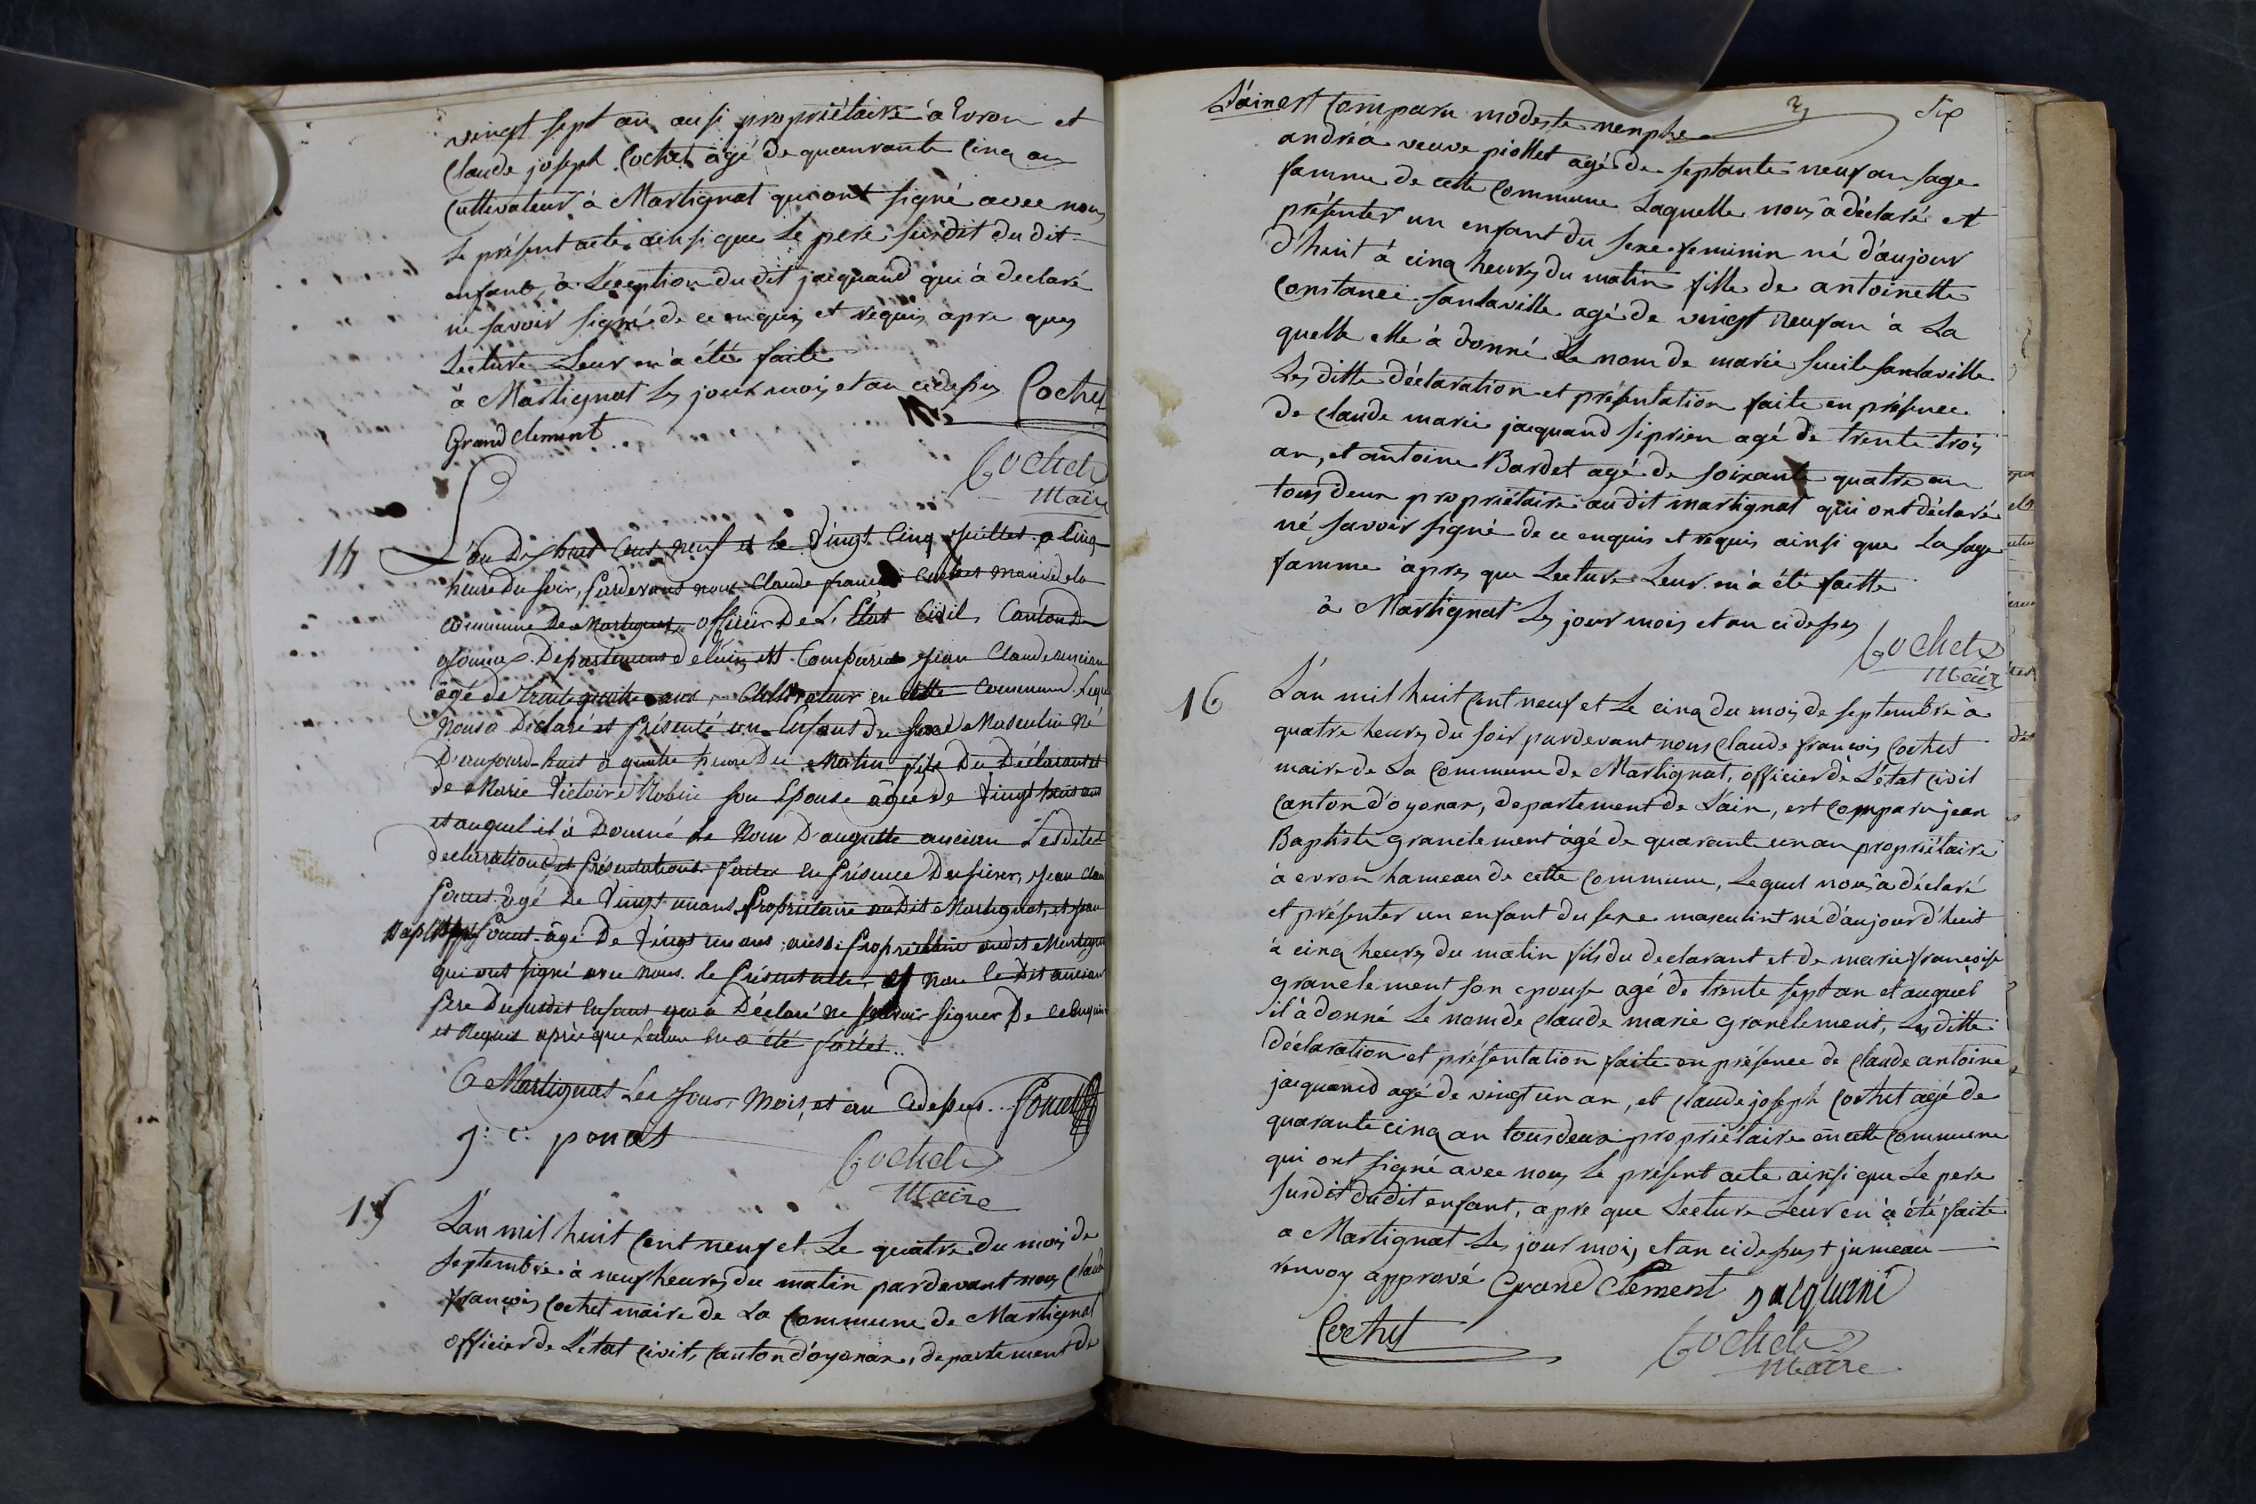 vingt sept an ausi propriétaire à Evron et
Claude joseph Cochet âgé de quauvante cinq an
Cultivateur à Martignat qui ont signé avec nous
Le présent acte ainsi que Le pere susdit du dit
enfant, à L'éception du dit jacquand qui à declaré
ne savoir signé de ce enquis et requis apre ques
Lecture Leur en à été faite
à Martignat Les jour mois et an cidessus Cochet
Grandclement
Cochet
Maire
14 L'an Dix huit Cent neuf et le Vingt Cinq juillet a Cinq
heure du soir, Pardevant nous Claude françois Cochet Maire de la
commune De Martignat officier De L'Etat Civil, Canton D
oyonnax Departement de l'ain, est Comparus jean Claude ancian
âgé de trente quatre ans, Cultivateur en cette Commune Lequel
Nous a Déclaré et présenté un Enfant du sexe Masculin Né
D'aujourd-huit à quatre heure Du Matin fils Du Déclarant et
de Marie Victoire Robin son Epouse âgée de Vingt huit ans
et auquel il à Donné Le Nom D'auguste ancian Les dites
declaration et présentations faites En présence Des sieurs, jean Clau
Ponas âgé De Vingt un ans Propriétaire au Dit Martignat, et jean
Baptiste Ponas âgé De Vingt un ans, aussi Propriétaire audit Martignat
qui ont signé avec nous le Présent acte, et Non le Dit ancian
pere Du susdit Enfant qui à Déclaré ne savoir signer De ce Enquis
et Requis après que Lecture En a été faites..
A Martignat Les Jour, Mois, et an Cidessus.. Ponas
j: c: ponas
Cochet
Maire
15 L'an mil huit Cent neuf et Le quatre du mois de
septembre à neuf heures du matin pardevant nous Claude
françois Cochet maire de La Commune de Martignat
officier de L'état Civil, Canton d'oyonax, departement de
L'ain est Comparu modeste nenphe
3 Six
andréa veuve piollet agé de septante neuf an sage
famme de cette Commune Laquelle nous à déclaré et
présenter un enfant du sexe feminin né d'aujour
d'huit à cinq heures du matin fille de antoinette
Constance santaville agé de vingt neuf an à La
quelle elle à donné Le nom de marie Lucile santaville
Les ditte déclaration et présentation faite en présence
de Claude marie jacquand siprien agé de trente trois
an, et antoine Bardet agé de soixante quatre an
tous deux propriétaire au dit martignat qui ont déclaré
né savoir signé de ce enquis et requis ainsi que La sage
famme après que Lecture Leur en à été faitte
à Martignat Les jour mois et an cidessus
Cochet
Maire
16 L'an mil huit Cent neuf et Le cinq du mois de septembre à
quatre heures du soir pardevant nous Claude françois Cochet
maire de La Commune de Martignat, officier de L'état Civil
Canton d'oyonax, departement de L'ain, est Comparu jean
Baptiste granclement âgé de quarante un an propriétaire
à evron hameau de cette Commune, Lequel nous à déclaré
et présenter un enfant du sexe masculint né d'aujourd'huit
à cinq heures du matin fils du declarant et de marie françoise
granclement son epouse agé de trente sept an et auquel
il à donné Le nom de Claude marie granclement, Les ditte
déclaration et présentation faite en présence de Claude antoine
jacquand agé de vingt un an, et Claude joseph Cochet agé de
quarante cinq an tous deux propriétaire en cette Commune
qui ont signé avec nous Le présent acte ainsi que Le pere
susdit du dit enfant, apre que Lecture Leur en à été faite
a Martignat Les jour mois, et an cidessus + jumeau
renvoy apprové Grand Clement jacquand
Cochet
Cochet
Maire